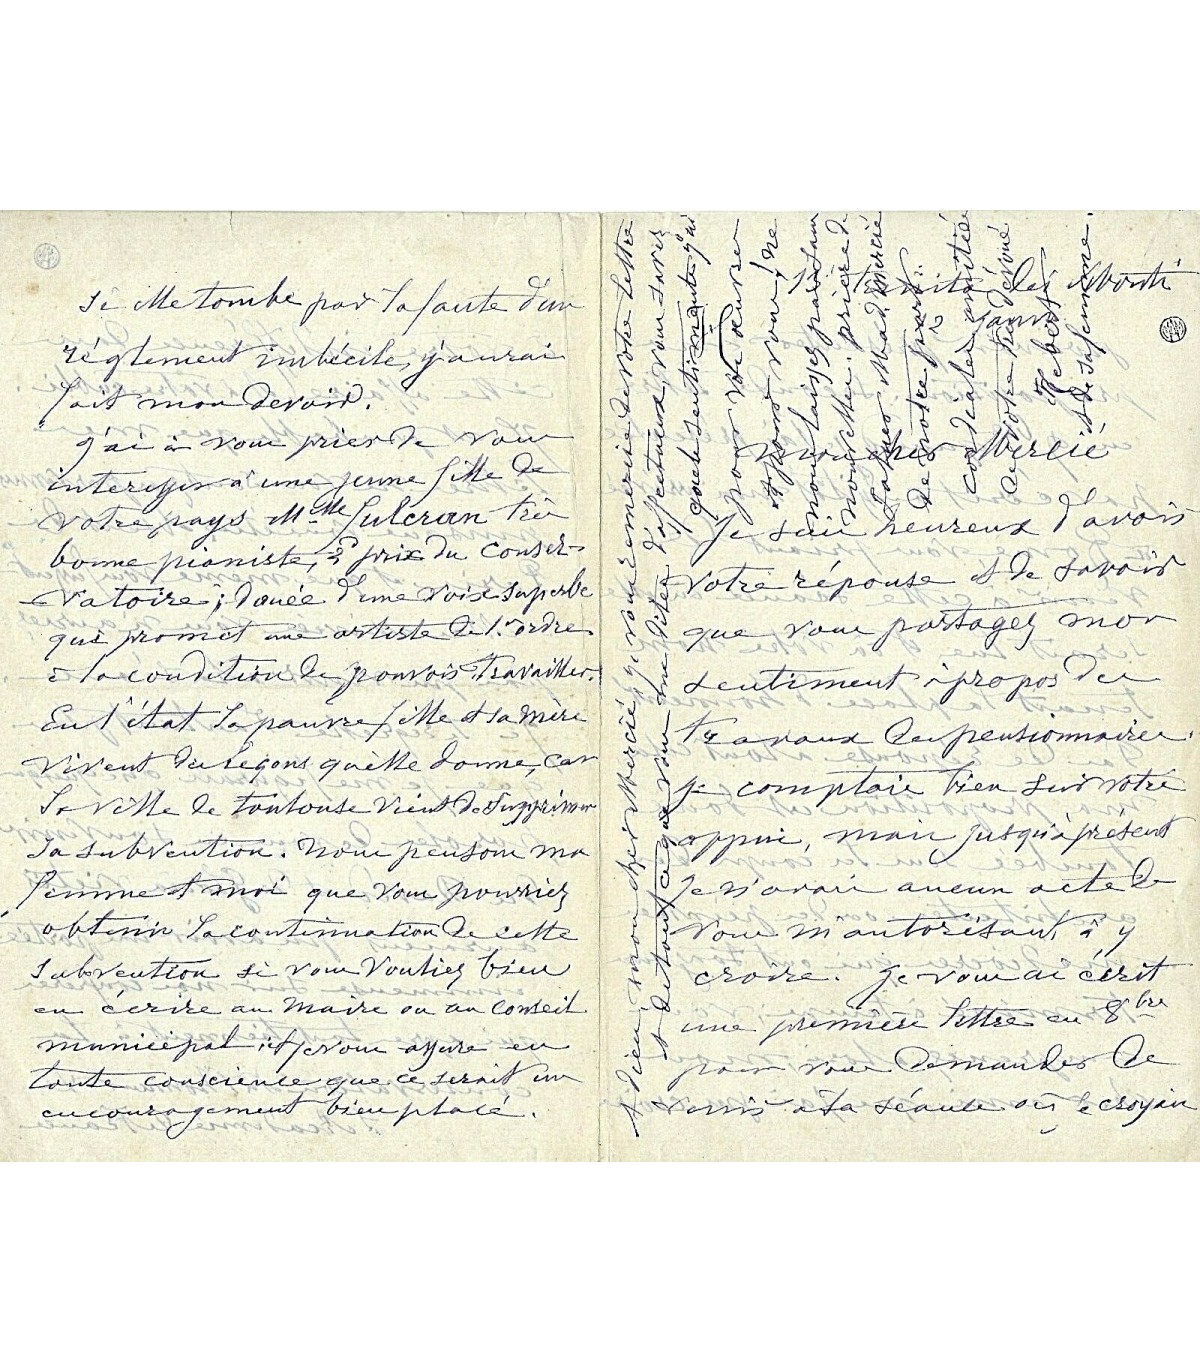 mon cher Mercié
Je suis heureux d'avoir
votre réponse et de savoir
que vous partagez mon
sentiment à propos des
travaux des pensionnaires.
je comptais bien sur votre
appui, mais jusqu'à présent
je n'avais aucun acte de
vous m'autorisant à y
croire. je vous ai écrit
une première lettre en 8bre
pour vous demander de
venir à la séance où je croyais
si elle tombe par la faute d'un
réglement imbécile, j'aurai
fait mon devoir.
j'ai à vous prier de vous
interesser à une jeune fille de
votre pays Mlle Fulcran très
bonne pianiste, 2e prix du conser-
vatoire; douée d'une voix superbe
qui promet une artiste de 1er ordre
à la condition de pouvoir travailler.
En l'état la pauvre fille et sa mère
vivent des leçons qu'elle donne, car
la ville de toulouse vient de supprimer
sa subvention. Nous pensons ma
femme et moi que vous pourriez
obtenir la continuation de cette
subvention si vous vouliez bien
en écrire au Maire ou au conseil
municipal; et je vous assure en
toute conscience que ce serait un
encouragement bien placé.
Adieu, mon cher Mercié, je vous remercie de votre lettre
et de tout ce que vous me dites d'affectueux, vous savez
quels sentiments j'ai
pour votre œuvre
et pour vous, ne
nous laissez pas sans
nouvelles. prière de
saluer Mad. Mercié
de notre part.
cordiales amitiés
de votre très dévoué
Hébert
et de sa femme.